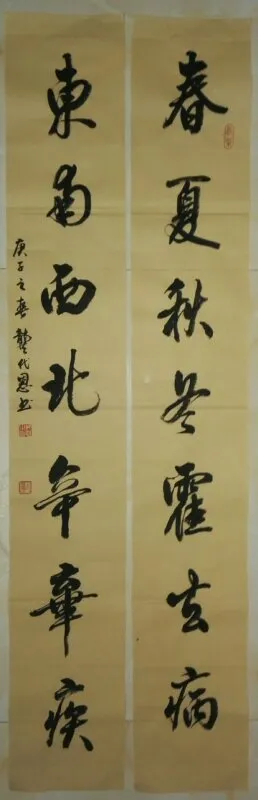 春夏秋冬霍去病
東南西北辛棄疾
庚子之春龔代恩书